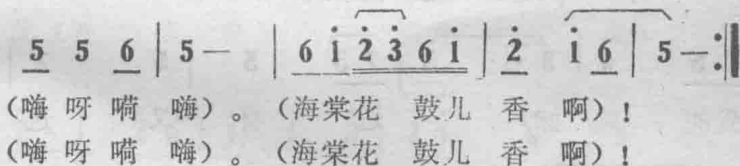 5 5 6 | 5 — | 6 i̇ 2̇ 3̇ 6 i̇ | 2̇ i̇ 6 | 5 — :‖
(嗨 呀 嗬 嗨)。(海棠花 鼓儿 香 啊)!
(嗨 呀 嗬 嗨)。(海棠花 鼓儿 香 啊)!